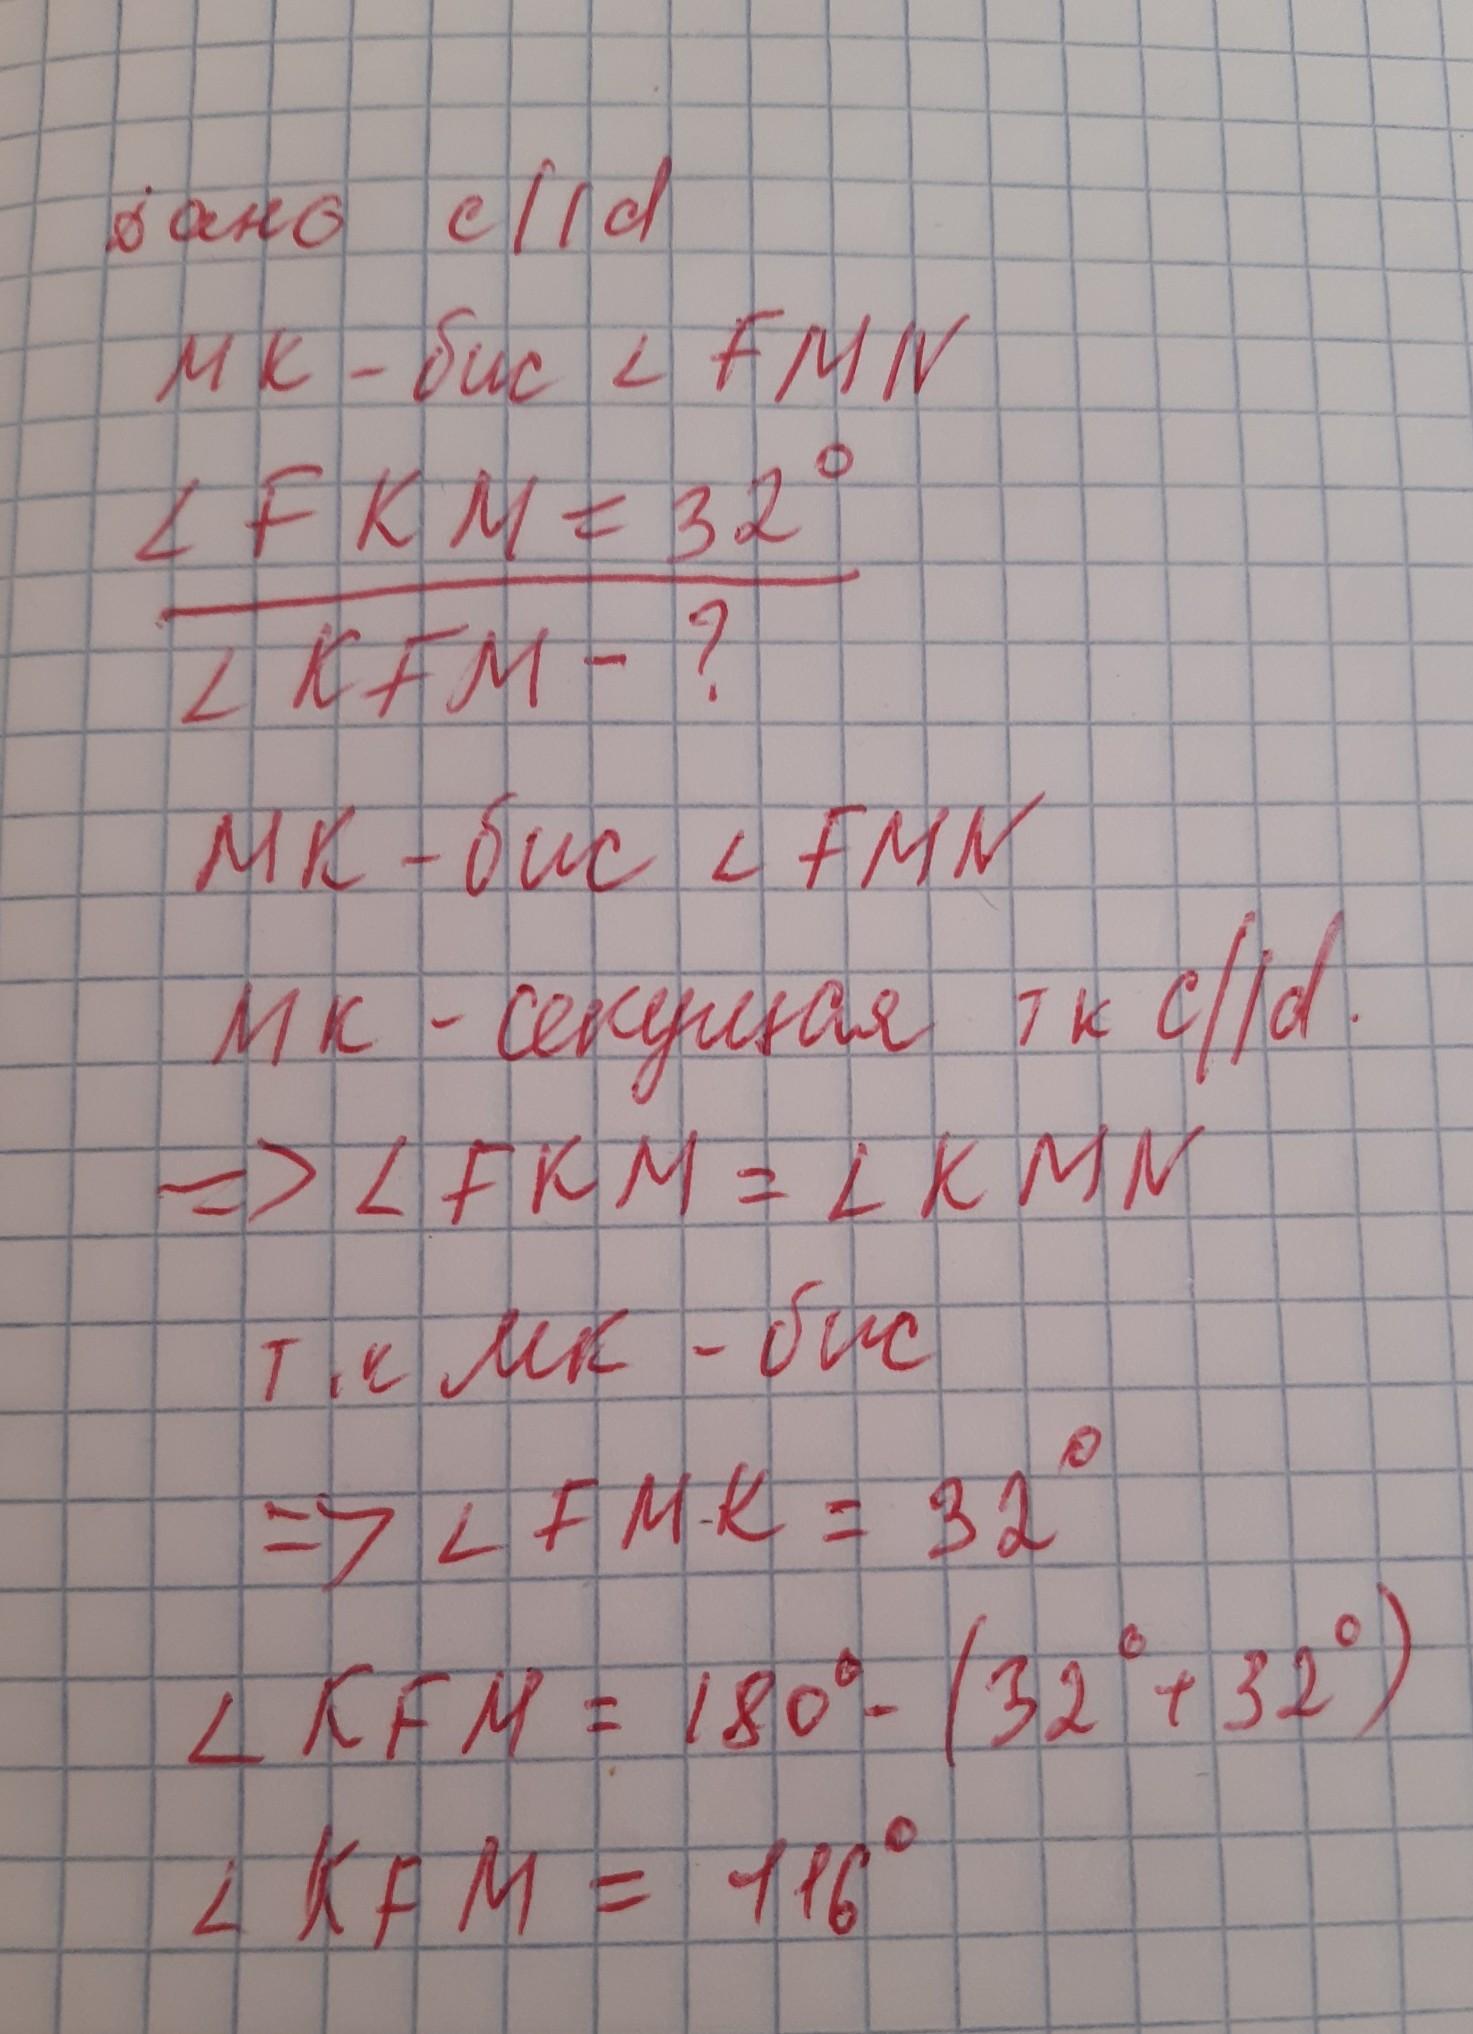 дано c||d
МК - бис ∠ FMN
∠ FKM = 32°
∠ KFM - ?
МК - бис ∠ FMN
МК - секущая тк c||d.
=> ∠ FKM = ∠ KMN
т.к МК - бис
=> ∠ FMK = 32°
∠ KFM = 180° - (32° + 32°)
∠ KFM = 116°